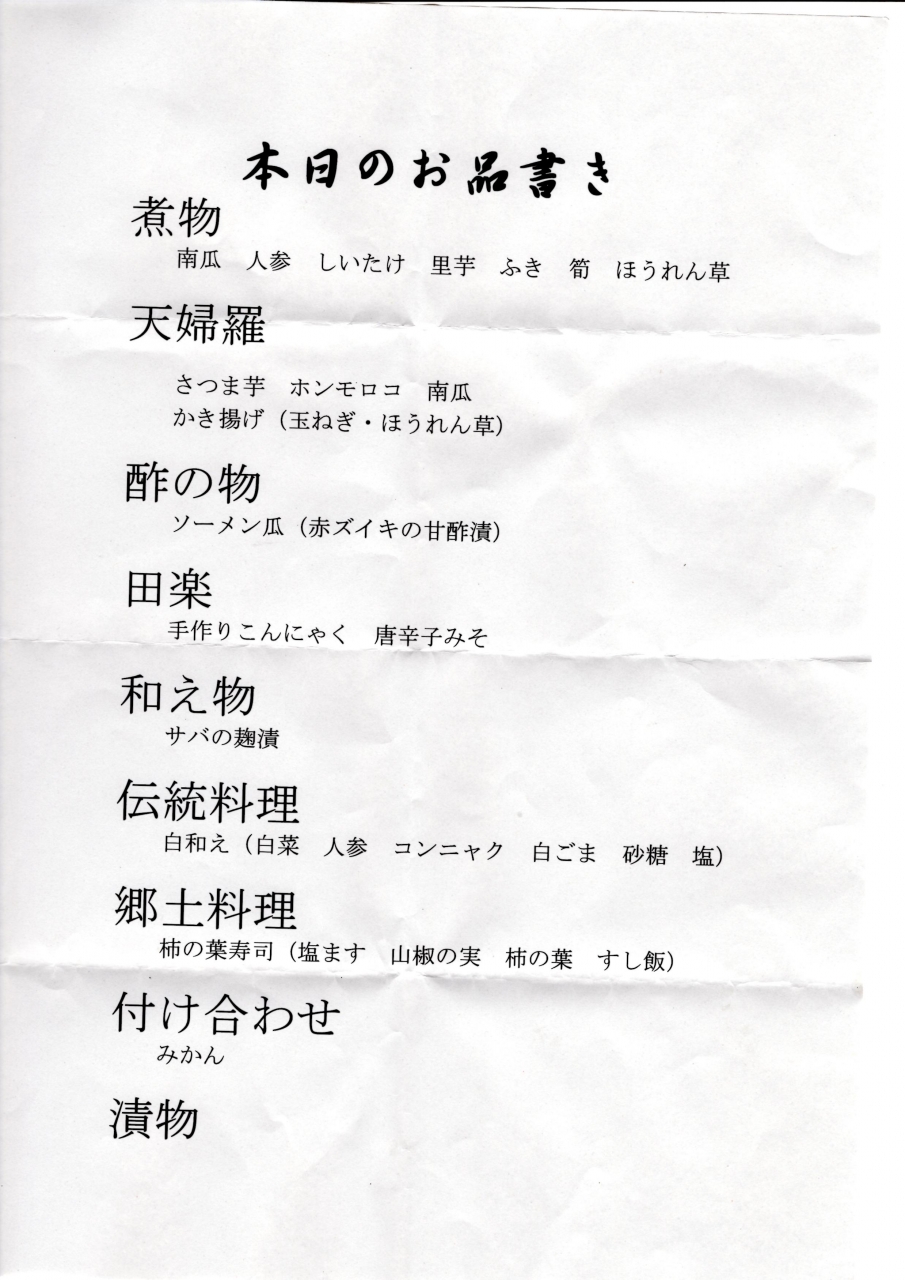 本日のお品書き
煮物
南瓜　人参　しいたけ　里芋　ふき　筍　ほうれん草
天婦羅
さつま芋　ホンモロコ　南瓜
かき揚げ（玉ねぎ・ほうれん草）
酢の物
ソーメン瓜（赤ズイキの甘酢漬）
田楽
手作りこんにゃく　唐辛子みそ
和え物
サバの麹漬
伝統料理
白和え（白菜　人参　コンニャク　白ごま　砂糖　塩）
郷土料理
柿の葉寿司（塩ます　山椒の実　柿の葉　すし飯）
付け合わせ
みかん
漬物